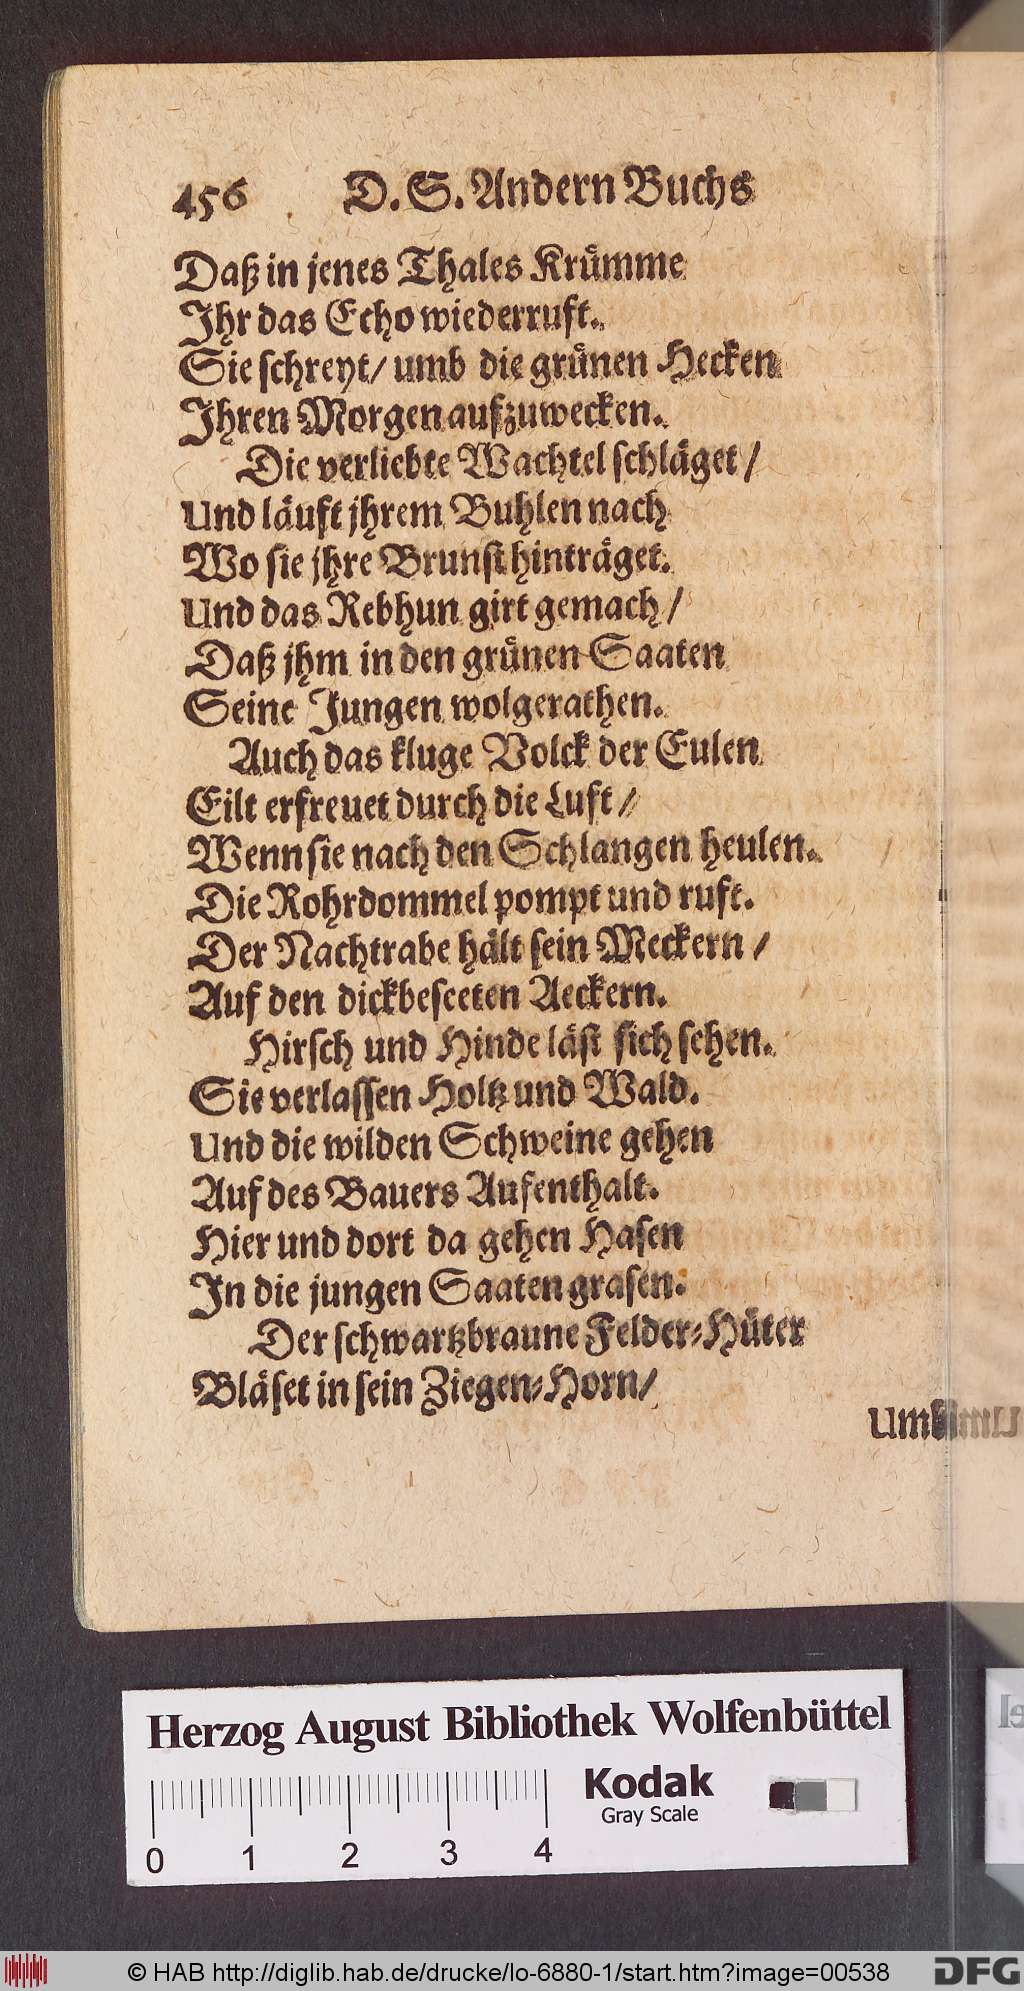 456 D. S. Andern Buchs
Daß in jenes Thales Kruͤmme
Ihr das Echo wiederruft.
Sie schreyt/ umb die gruͤnen Hecken
Ihren Morgen aufzuwecken.
Die verliebte Wachtel schlaͤget/
Und laͤuft jhrem Buhlen nach
Wo sie jhre Brunst hintraͤget.
Und das Rebhun girt gemach/
Daß jhm in den gruͤnen Saaten
Seine Jungen wolgerathen.
Auch das kluge Volck der Eulen
Eilt erfreuet durch die Luft/
Wenn sie nach den Schlangen heulen.
Die Rohrdommel pompt und ruft.
Der Nachtrabe haͤlt sein Meckern/
Auf den dickbeseeten Aeckern.
Hirsch und Hinde laͤst sich sehen.
Sie verlassen Holtz und Wald.
Und die wilden Schweine gehen
Auf des Bauers Aufenthalt.
Hier und dort da gehen Hasen
In die jungen Saaten grasen.
Der schwartzbraune Felder-Huͤter
Blaͤset in sein Ziegen-Horn/
Umb
Herzog August Bibliothek Wolfenbüttel
Kodak
Gray Scale
0 1 2 3 4
© HAB http://diglib.hab.de/drucke/lo-6880-1/start.htm?image=00538
DFG